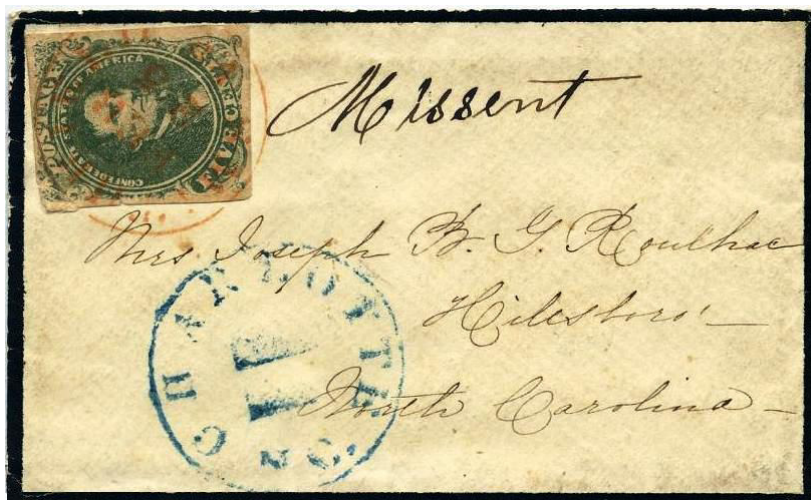 POSTAGE
CONFEDERATE STATES OF AMERICA
FIVE CENTS
Missent
Mrs Joseph B. G. Roulhac
Hilesboro'
North Carolina
CHARLOTTE N.C.